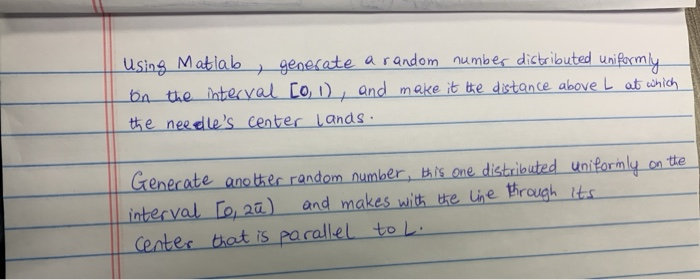 Using Matlab, generate a random number distributed uniformly
on the interval [0,1), and make it the distance above L at which
the needle's center lands.
Generate another random number, this one distributed uniformly on the
interval [0, 2π) and makes with the line through its
center that is parallel to L.